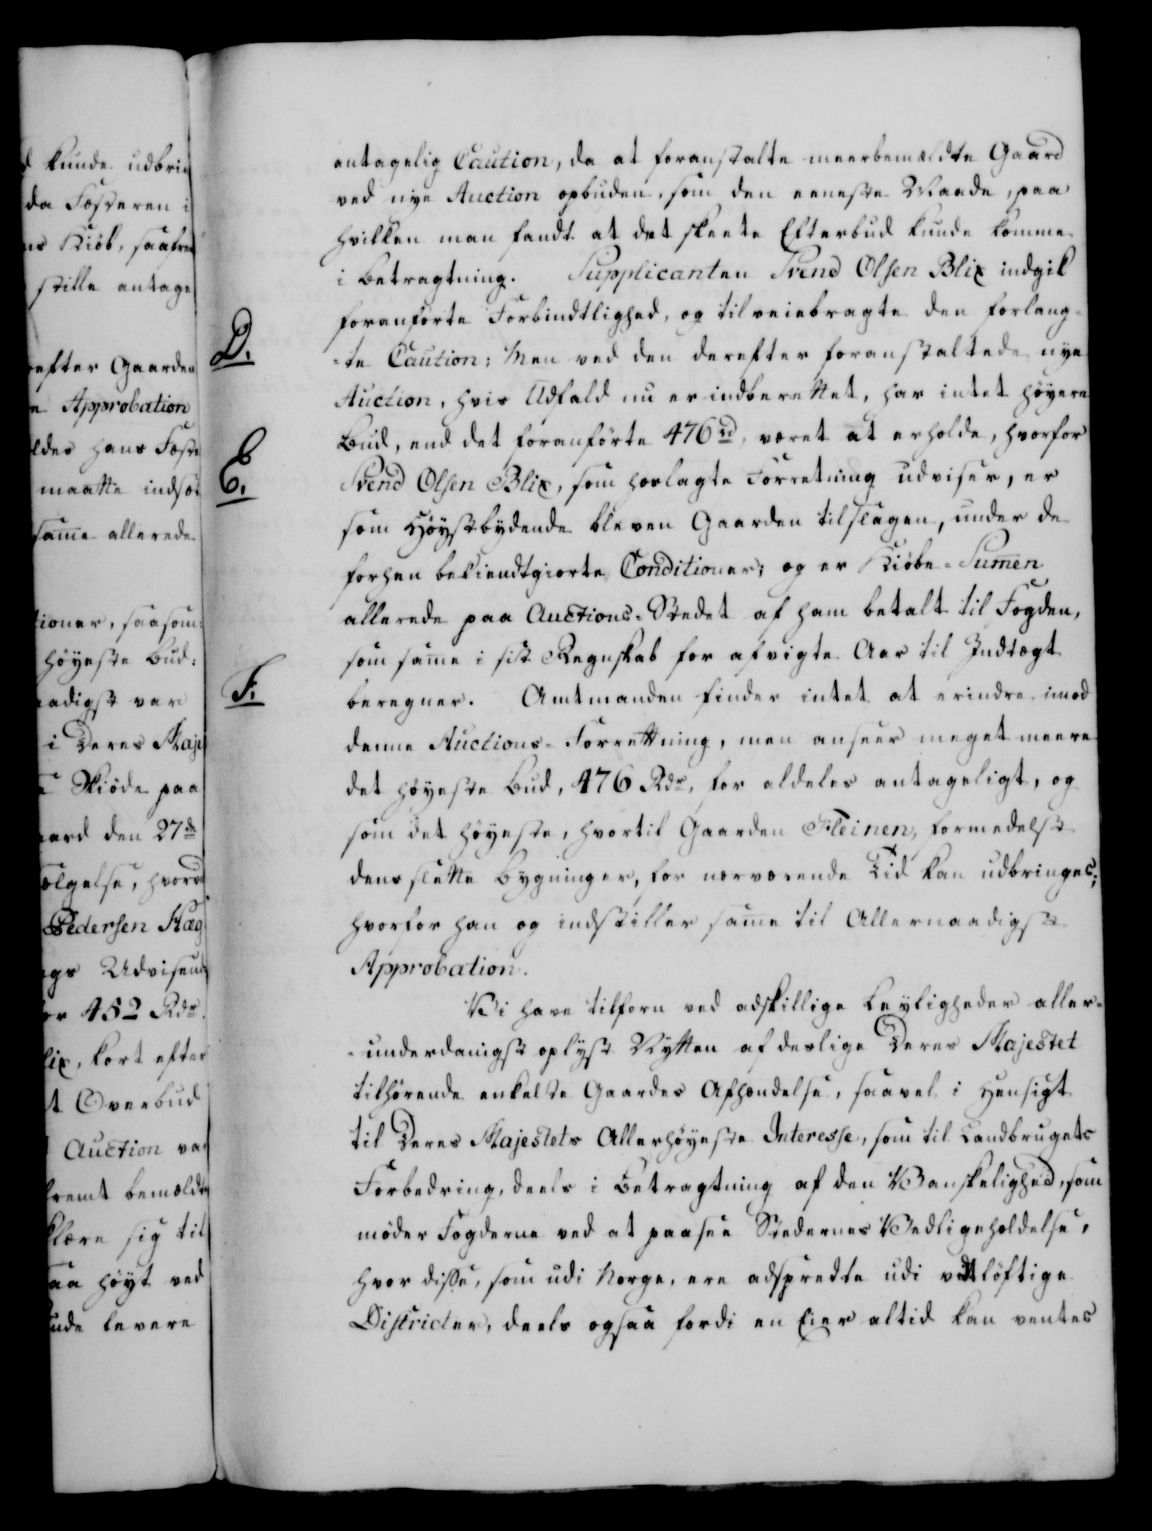 d kunde udbrin
da Fæsteren i
ns Kiöb, saafre
stille antage
efter Gaarden
n Approbation
ldes hans Fæste
maatte indsæt
samme allerede
tioner, saasom:
höyeste Bud:
aadigst var
i Deres Maje
Skiöde paa
aard den 27de
ølgelse, hvord
Pedersen Hag
gs Udvisend
or 452 Rdr.
lix, kort efter
t Overbud
Auction va
fremt bemeldte
klære sig til
aa höyt ved
nde levere
antagelig Caution, da at foranstalte meerbemældte Gaard
ved nye Auction opbuden, som den eeneste Maade, paa
hvilken man fandt at det skeete Efterbud kunde komme
i Betragtning. Supplicanten Svend Olsen Blix indgik
foranførte Forbindtlighed, og tilveiebragte den forlang-
D.
-te Caution; Men ved den derefter foranstaltede nye
Auction, hvis Udfald nu er indberettet, har intet höyere
Bud, end det foranförte 476 rd, været at erholde, hvorfor
E.
Svend Olsen Blix, som hoslagte Forretning udviser, er
som Höystbydende bleven Gaarden tilslagen, under de
forhen bekiendtgiorte Conditioner; og er Kiøbe-Summen
allerede paa Auctions-Stedet af ham betalt til Fogden,
som samme i sit Regnskab for afvigte Aar til Indtægt
F.
beregner. Amtmanden finder intet at erindre imod
denne Auctions-Forrettning, men anseer meget meere
det höyeste Bud, 476 Rdr, for aldeles antageligt, og
som det höyeste, hvortil Gaarden Fleinen, formedelst
dens slette Bygninger, for nærværende Tid kan udbringes;
hvorfor han og indstiller samme til Allernaadigst
Approbation.
Vi have tilforn ved adskillige Leyligheder aller-
-underdanigst oplyst Nytten af deslige Deres Majestet
tilhørende enkelte Gaardes Afhændelse, saavel i Hensigt
til Deres Majestets Allerhöyeste Interesse, som til Landbrugets
Forbedring, deels i Betragtning af den Vanskelighed, som
møder Fogderne ved at paasee Stedernes Vedligeholdelse,
hvor disse, som udi Norge, ere adspredte udi vidtløftige
Districter, deels ogsaa fordi en Eier altid kan ventes